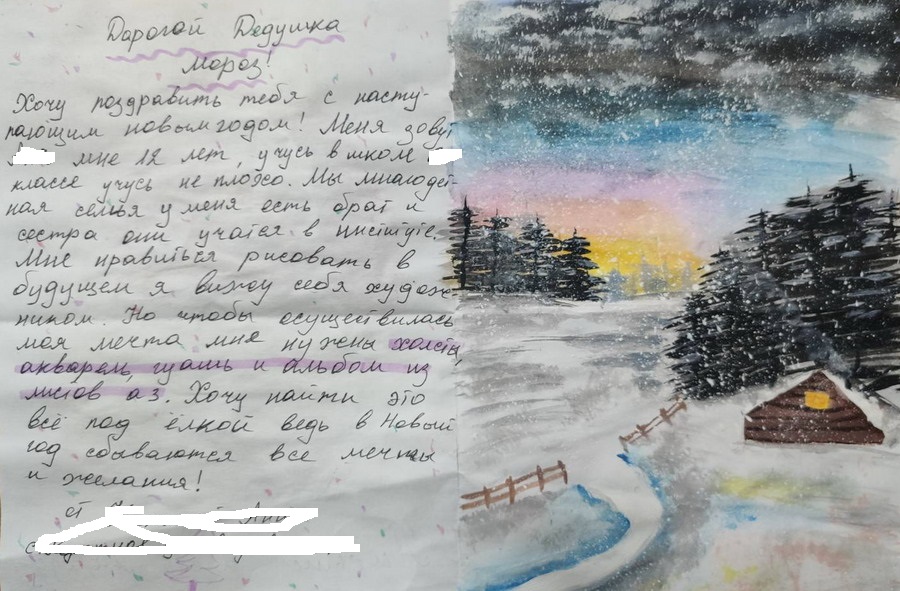 Дорогой Дедушка
Мороз!
Хочу поздравить тебя с насту-
пающим новым годом! Меня зовут
мне 12 лет, учусь в школе
классе учусь не плохо. Мы многодет-
ная семья у меня есть брат и
сестра они учатся в институте.
Мне нравиться рисовать в
будущем я вижу себя худож-
ником. Но чтобы осуществилась
моя мечта мне нужны холсты,
акварель, гуашь и альбом из
листов а3. Хочу найти это
всё под ёлкой ведь в Новый
год сбываются все мечты
и желания!
от